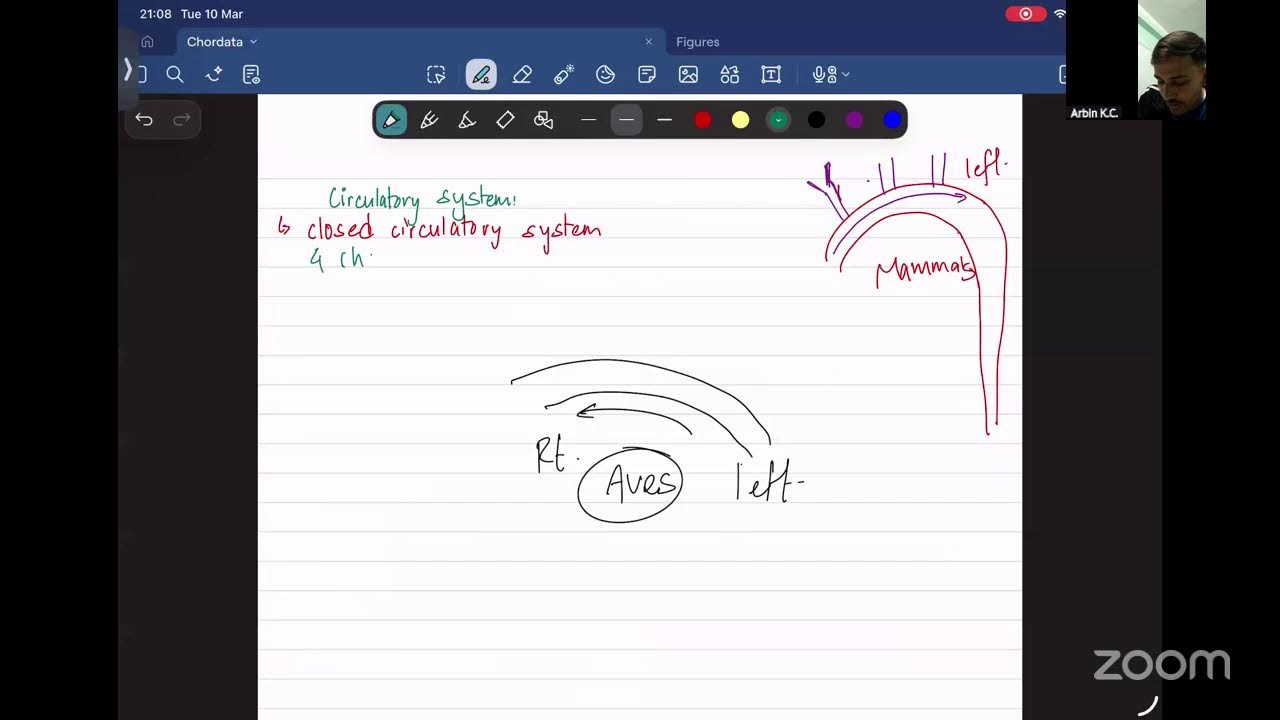 21:08 Tue 10 Mar
Chordata
Figures
Arbin K.C.
left.
Circulatory system:
↳ closed circulatory system
4 ch.
Mammals
Rt.
Aves
left-
zoom